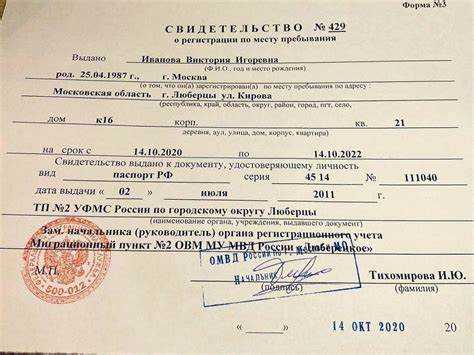 Форма №3
СВИДЕТЕЛЬСТВО № 429
о регистрации по месту пребывания
Выдано Иванова Виктория Игоревна
(Ф.И.О., год и место рождения)
род. 25.04.1987 г., г. Москва
(о том, что он(а) зарегистрирован(а) по месту пребывания по адресу:
Московская область г. Люберцы ул. Кирова
(республика, край, область, округ, район, город, пгт, село,
дом к16 корп. кв. 21
деревня, аул, улица, дом, корпус, квартира)
на срок с 14.10.2020 по 14.10.2022
Свидетельство выдано к документу, удостоверяющему личность
вид паспорт РФ серия 45 14 № 111040
дата выдачи « 02 » июля 2011 г.
ТП №2 УФМС России по городскому округу Люберцы
(наименование органа, учреждения, выдавшего документ)
Зам. начальника (руководитель) органа регистрационного учета
Миграционный пункт №2 ОВМ МУ МВД России «Люберецкое»
ОМВД России по г.
НАЧАЛЬНИК
М.П. Тихомирова И.Ю.
(подпись) (фамилия)
* 500-012 *
« » 14 ОКТ 2020 20